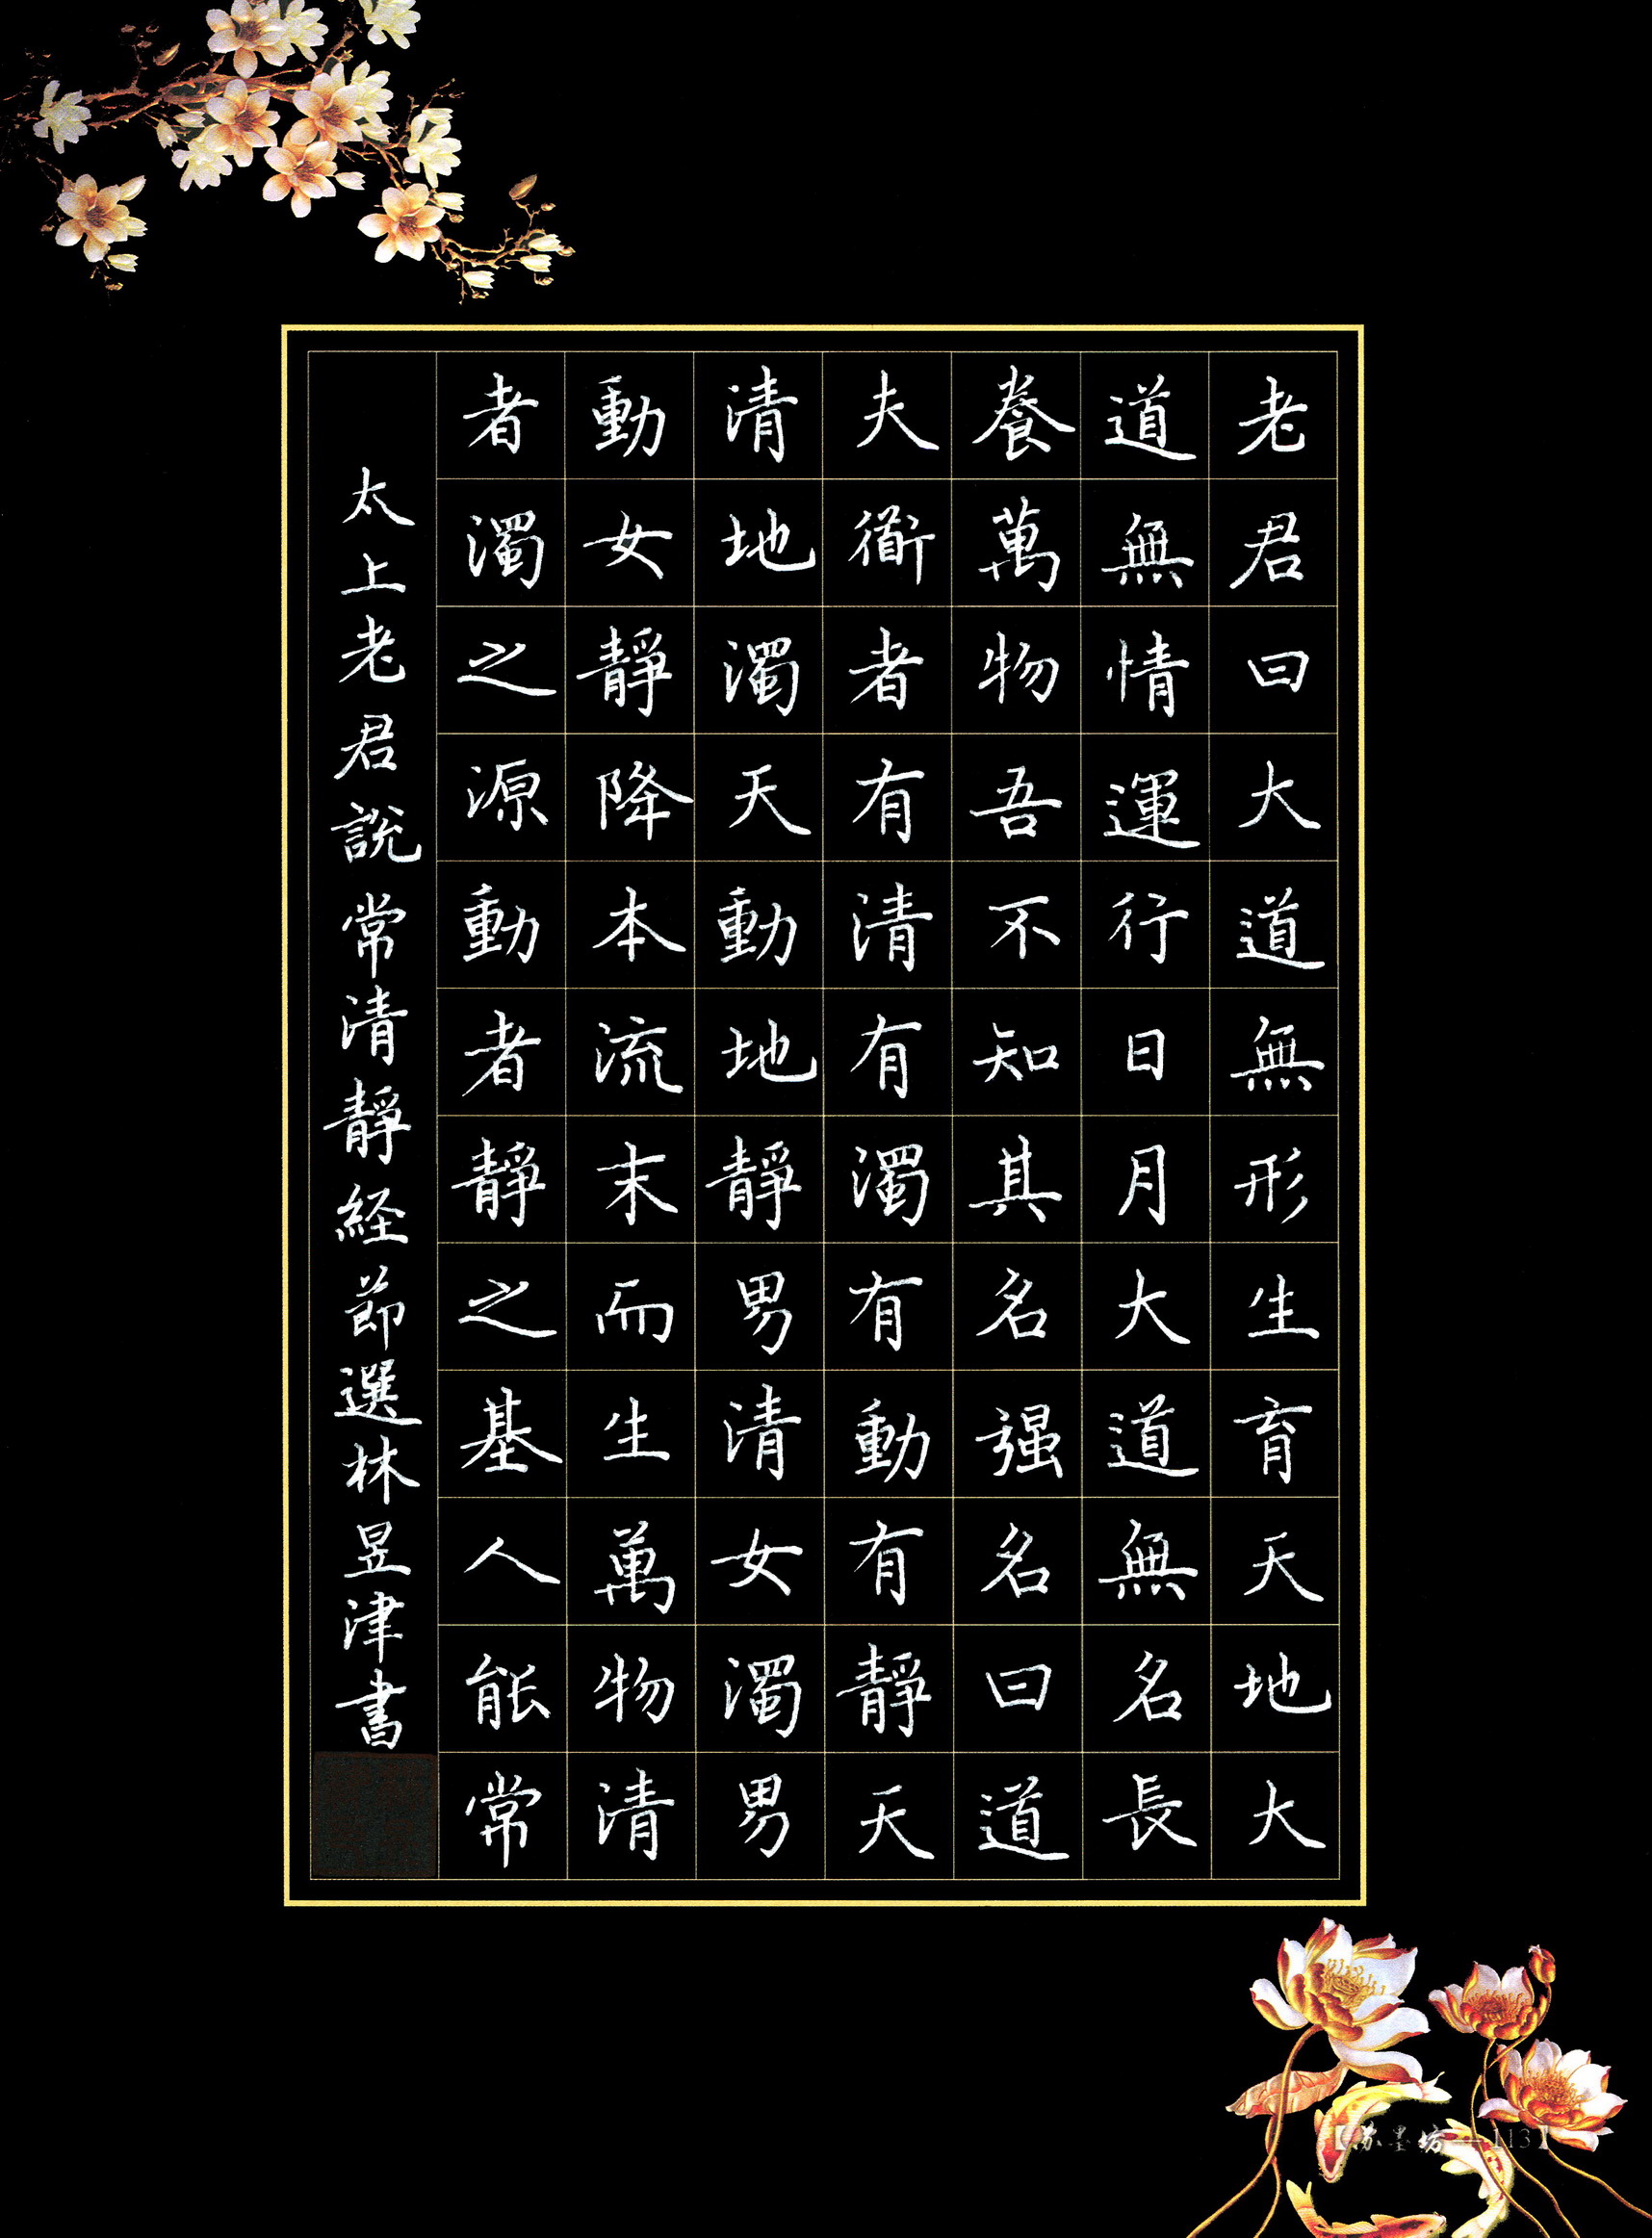 老君曰大道無形生育天地大
道無情運行日月大道無名長
養萬物吾不知其名强名曰道
夫衜者有清有濁有動有靜天
清地濁天動地靜男清女濁男
動女靜降本流末而生萬物清
者濁之源動者靜之基人能常
太上老君說常清靜経節選林昱津書
【墨坊—113】